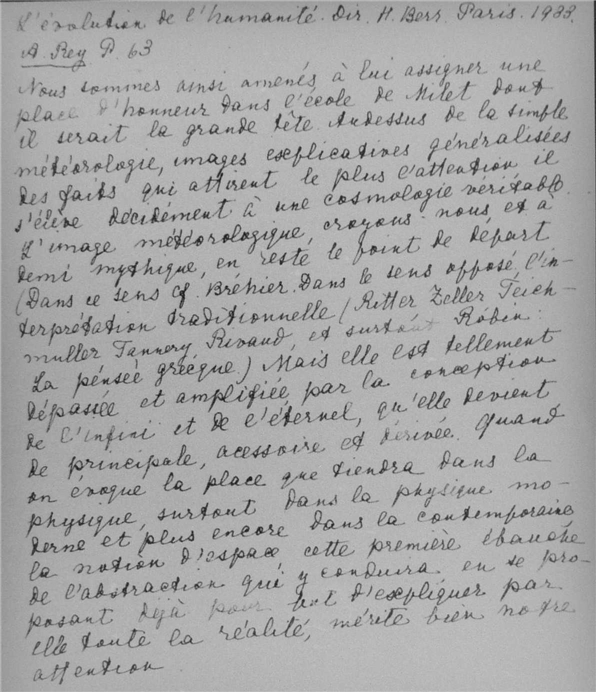 L'évolution de l'humanité. Dir. H. Berr. Paris. 1933.
A. Rey P. 63
Nous sommes ainsi amenés à lui assigner une
place d'honneur dans l'école de Milet dont
il serait la grande tête. Audessus de la simple
météorologie, images explicatives généralisées
des faits qui attirent le plus l'attention il
s'élève décidément à une cosmologie veritable.
L'image météorologique, croyons nous, et à
demi mythique, en reste le point de départ
(Dans ce sens cf. Bréhier. Dans le sens opposé, l'in-
terprétation traditionnelle (Ritter Zeller Teich-
muller Tannery Rivaud, et surtout Robin:
La pénseé grécque.) Mais elle est tellement
dépassée et amplifiée par la conception
de l'infini et de l'éternel, qu'elle devient
de principale, acessoire et dérivée. Quand
on évoque la place que tiendra dans la
physique, surtout dans la physique mo-
derne et plus encore dans la contemporaine
la notion d'espace cette première ébauche
de l'abstraction qui y conduira en se pro-
posant déjà pour but d'expliquer par
elle toute la réalité, mérite bien notre
attention